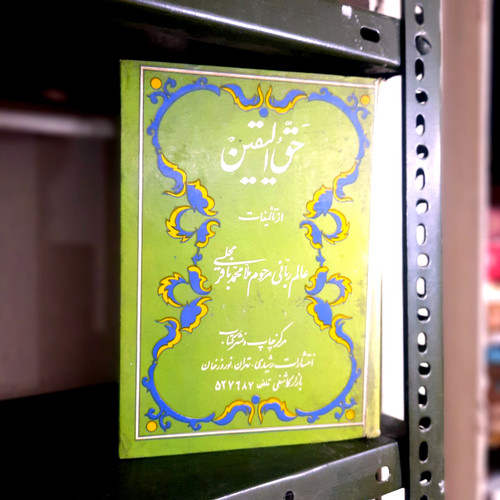 حق الیقین
از تألیفات
عالم ربانی مرحوم ملا محمد باقر مجلسی
مرکز چاپ و نشر کتاب
انتشارات رشیدی، تهران، نوروزخان
بازار کاشفی تلفن ۵۲۷۶۸۷